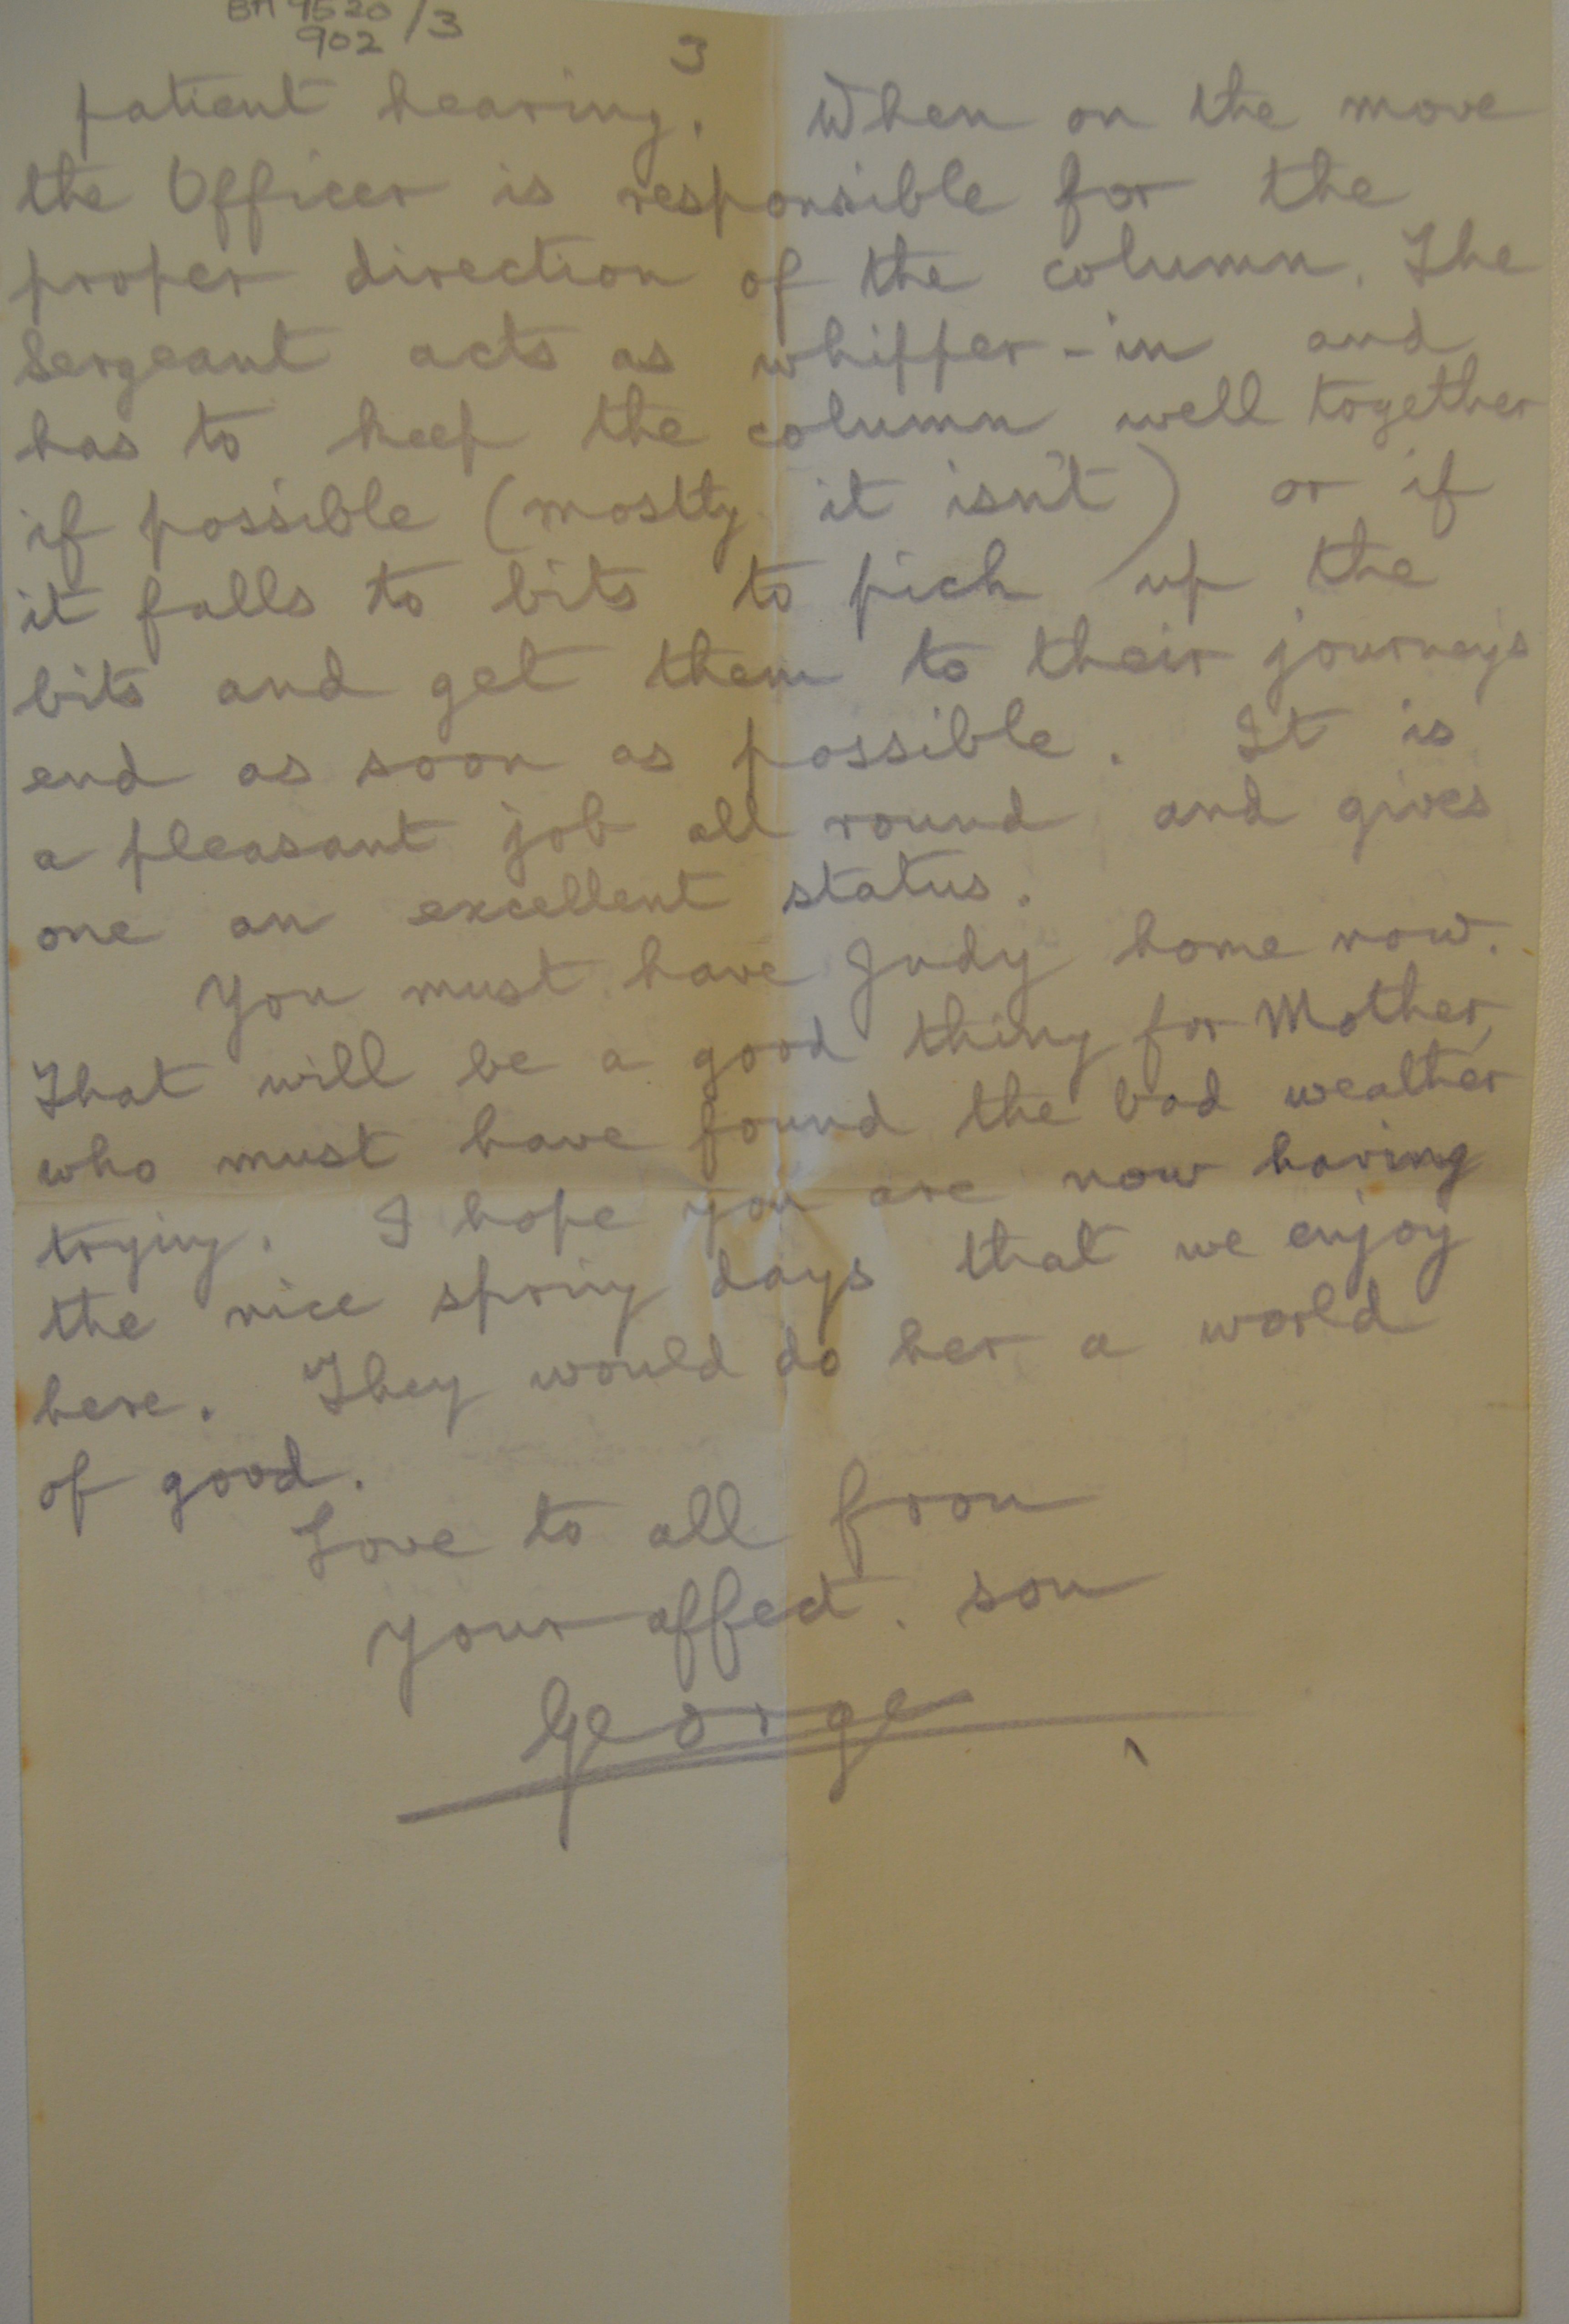 BA 9520/3
902
3
patient hearing. When on the move
the Officer is responsible for the
proper direction of the column. The
Sergeant acts as whipper-in and
has to keep the column well together
if possible (mostly it isn't) or if
it falls to bits to pick up the
bits and get them to their journeys
end as soon as possible. It is
a pleasant job all round and gives
one an excellent status.
You must have Judy home now.
That will be a good thing for Mother,
who must have found the bad weather
trying. I hope you are now having
the nice spring days that we enjoy
here. They would do her a world
of good.
Love to all from
your affect. son
George